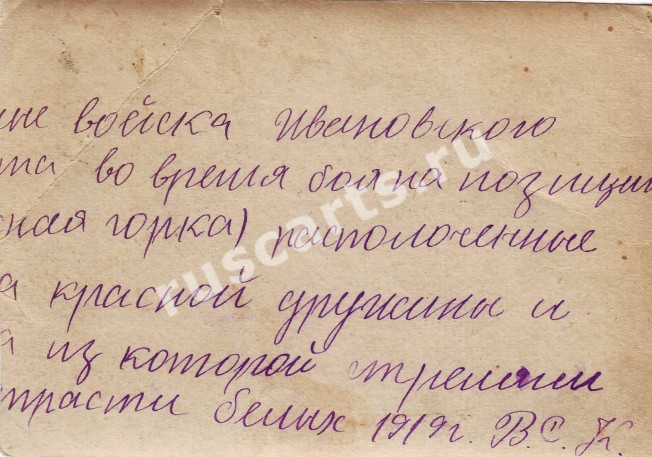 ные войска Ивановского
та во время боя на позиции
сная горка) расположенные
а красной дружины и
а из которой стреляли
трасти белых 1919 г. В. С. К.
ruscarts.ru